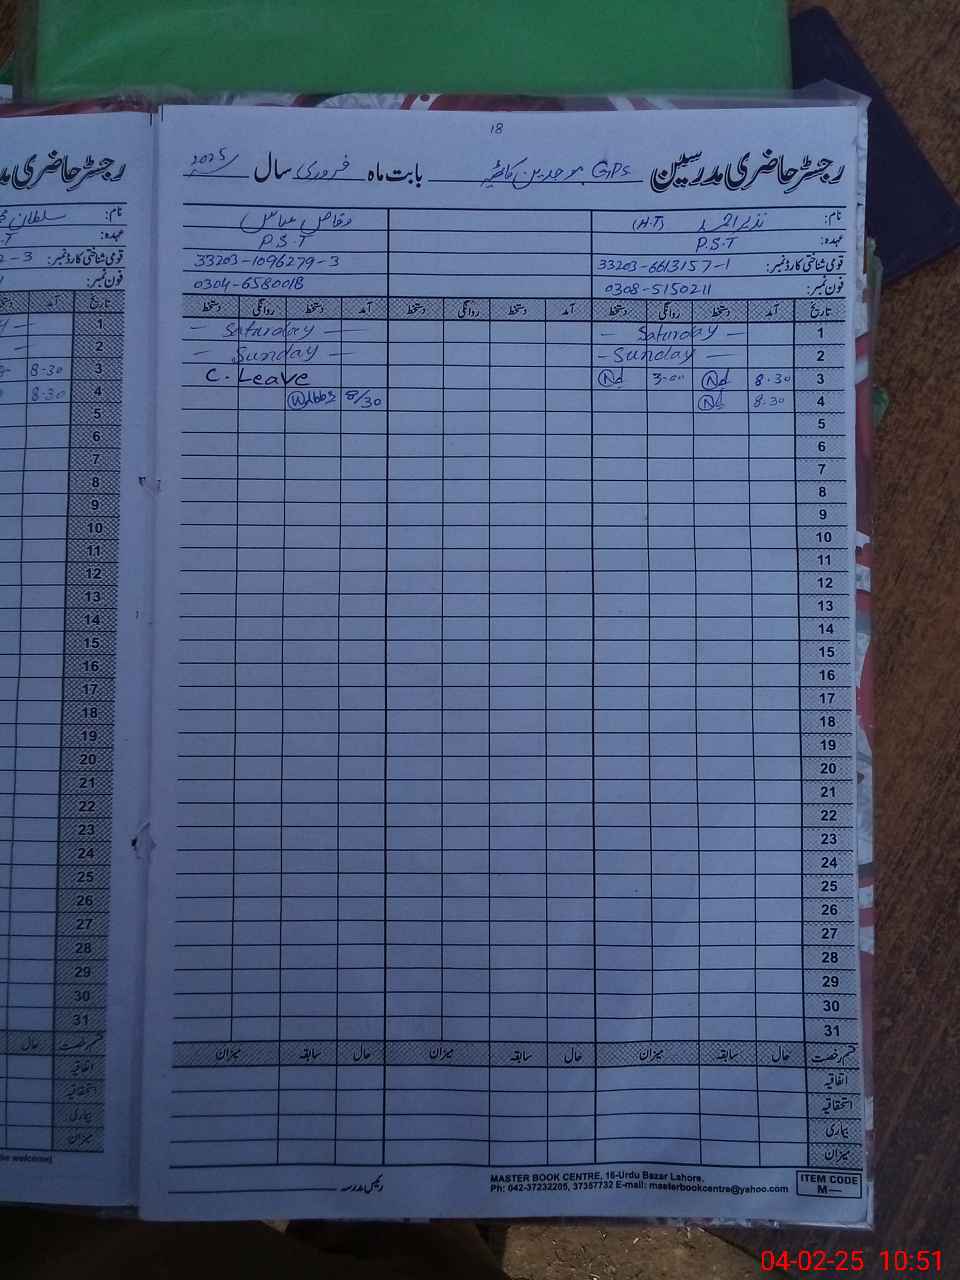 18
رجسٹر حاضری مدرسین GPS موحدین بابت ماہ فروری سال 2025
نام: نذیر احمد (H.T) وقاص عباس
عہدہ: P.S.T P.S.T
قومی شناختی کارڈ نمبر: 33203-6613157-1 33203-1096279-3
فون نمبر: 0308-5150211 0304-6580018
تاریخ آمد دستخط روانگی دستخط آمد دستخط روانگی دستخط آمد دستخط روانگی دستخط
1 — Saturday — — Saturday —
2 — Sunday — — Sunday —
3 8.30 Nd 3-00 Nd C. Leave
4 8.30 Nd 8/30
5
6
7
8
9
10
11
12
13
14
15
16
17
18
19
20
21
22
23
24
25
26
27
28
29
30
31
قسم رخصت حال سابقہ میزان حال سابقہ میزان حال سابقہ میزان
اتفاقیہ
استحقاقیہ
بیماری
میزان
رئیس مدرسہ
MASTER BOOK CENTRE, 16-Urdu Bazar Lahore.
Ph: 042-37232205, 37357732 E-mail: masterbookcentre@yahoo.com
ITEM CODE
M—
رجسٹر حاضری
نام: سلطان
عہدہ:
قومی شناختی کارڈ نمبر: 2-3
فون نمبر:
تاریخ آمد
1
2
3 8-30
4 8.30
5
6
7
8
9
10
11
12
13
14
15
16
17
18
19
20
21
22
23
24
25
26
27
28
29
30
31
قسم رخصت حال
اتفاقیہ
استحقاقیہ
بیماری
میزان
be welcome)
04-02-25 10:51